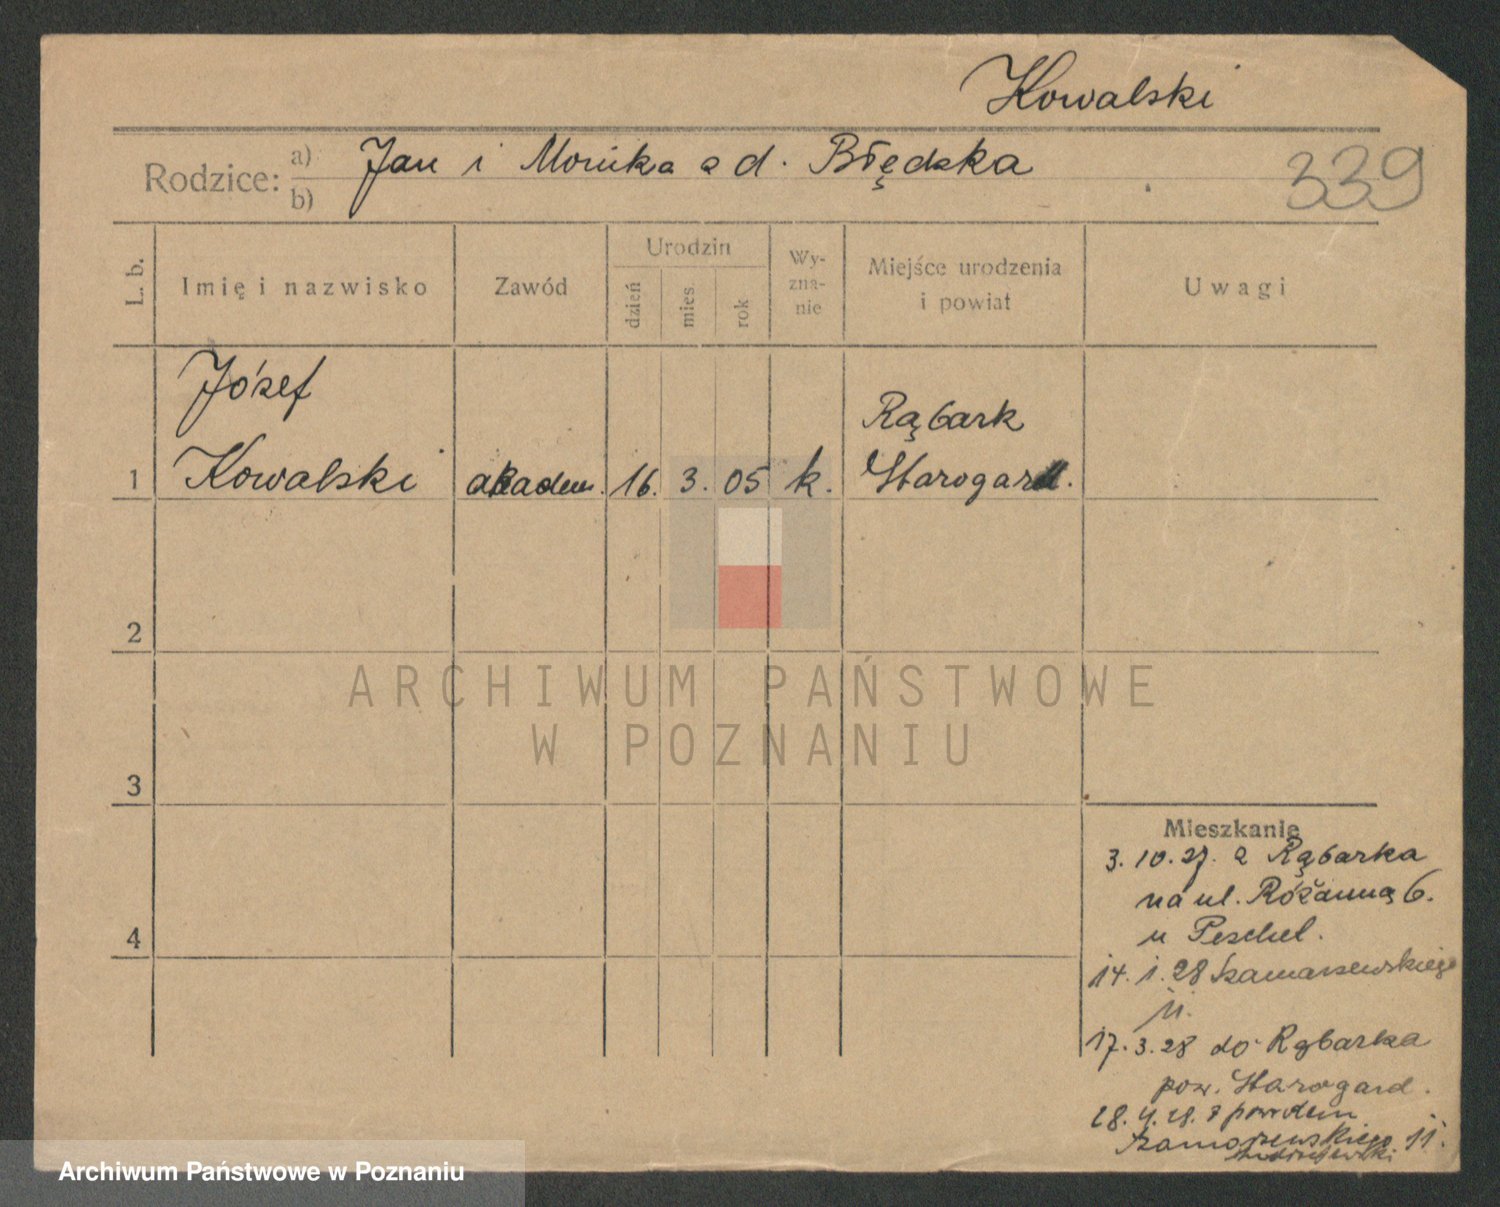 Kowalski
Rodzice: a) Jan i Monika z d. Błędzka
b)
339
L. b.
Imię i nazwisko
Zawód
Urodzin
dzień
mies.
rok
Wy-
zna-
nie
Miejsce urodzenia
i powiat
Uwagi
Józef
Kowalski
1
akadem.
16.
3.
05
k.
Rąbark
Starogard.
2
3
4
Mieszkanie
3. 10. 27. z Rąbarka
na ul. Różanną 6.
u Peschel.
14. 1. 28 Szamarzewskiego
11.
17. 3. 28 do Rąbarka
pow. Starogard.
28. 4. 28. z powrotem
Szamarzewskiego 11.
ARCHIWUM PAŃSTWOWE
W POZNANIU
Archiwum Państwowe w Poznaniu